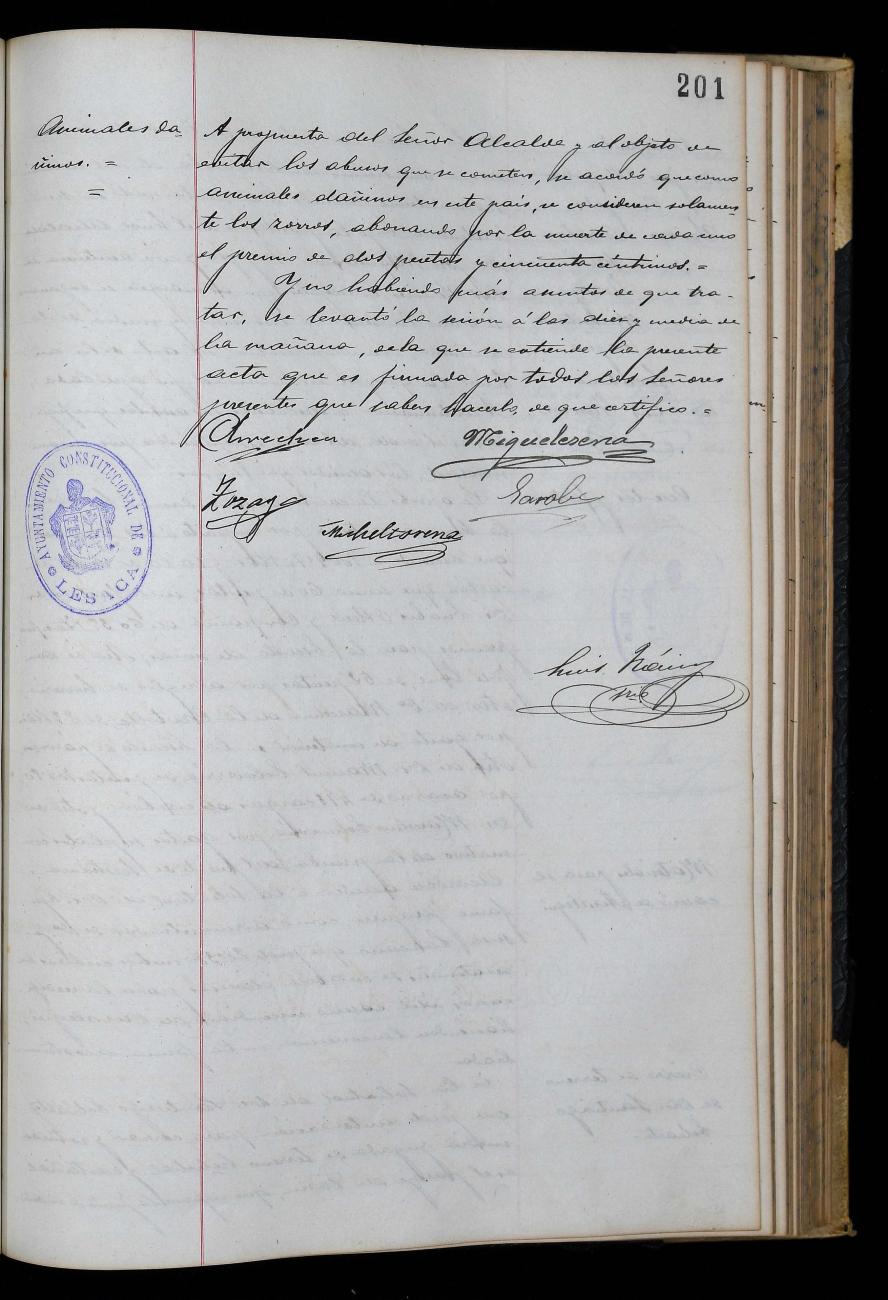 201
Animales da-
ñinos. =
=
A propuesta del Señor Alcalde y al objeto de
evitar los abusos que se cometen, se acordó que como
animales dañinos en este país, se consideren solamen-
te los zorros, abonando por la muerte de cada uno
el premio de dos pesetas y cincuenta céntimos. =
Y no habiendo más asuntos de que tra-
tar, se levantó la sesión á las diez y media de
la mañana, de la que se extiende la presente
acta que es firmada por todos los Señores
presentes que saben hacerlo, de que certifico. =
Arrechea Migueltorena
Zozaya
Micheltorena
AYUNTAMIENTO CONSTITUCIONAL DE
LESACA
Luis
Srio